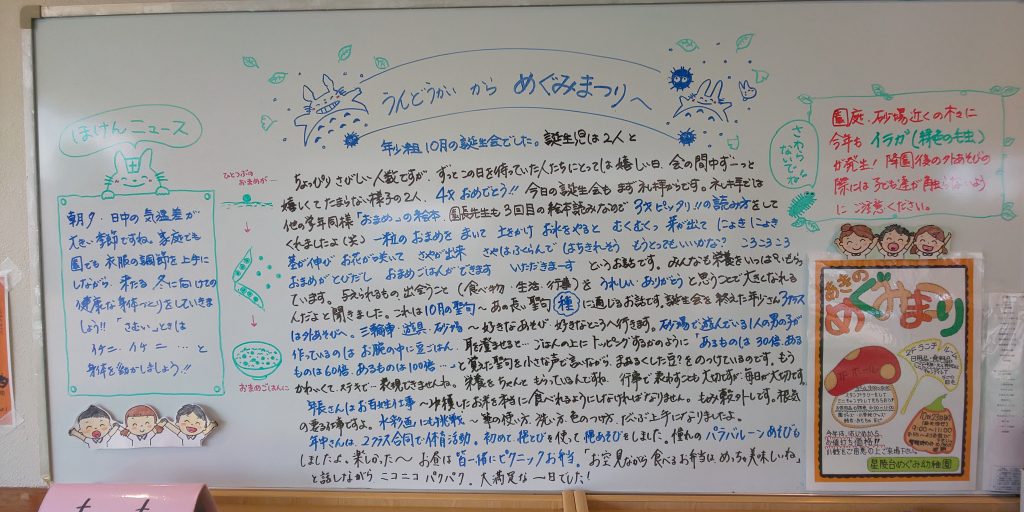 うんどうかい から めぐみまつり へ
ほけんニュース
朝夕・日中の気温差が
大きい季節ですね。家庭でも
園でも衣服の調節を上手に
しながら、来たる冬に向けての
健康な身体づくりをしていきま
しょう!!「さむい」ときは
イチニ・イチニ … と
身体を動かしましょう!!
ひとつぶの
おまめが…
おまめごはんに
年少組10月の誕生会でした。誕生児は2人と
ちょっぴりさびしい人数ですが、ずっとこの日を待っていた人たちにとっては嬉しい日、会の間中ずーっと
嬉しくてたまらない様子の2人、4才おめでとう!! 今日の誕生会もまず礼拝からです。礼拝では
他の学年同様「おまめ」の絵本、園長先生も3回目の絵本読みなので3才ピッタリ!!の読み方をして
くれましたよ(笑) 一粒のおまめを まいて 土をかけ お水をやると むくむくっ 芽が出て にょきにょき
茎が伸び お花が咲いて さやが出来 さやはふくらんで はちきれそう もうとってもいいかな? ころころころ
おまめがとびだし おまめごはんができます いただきまーす というお話です。みんなも栄養をいっぱいもら
っています。与えられるもの 出会うこと(食べ物・生活・行事)を うれしい・ありがとう と思うことで大きくなれる
んだよと聞きました。これは10月の聖句〜あの長い聖句 種 に通じるお話です。誕生会を終えた年少さん2クラス
は外あそびへ、三輪車・遊具・砂場 〜 好きなあそび 好きなところへ行きます。砂場で遊んでいる1人の男の子が
作っているのはお腕の中に豆ごはん、耳を澄ませると…ごはんの上にトッピングするかのように「あるものは30倍、ある
ものは60倍、あるものは100倍…」と覚えた聖句を小さな声で言いながら、まあるくした豆?をのっけているのです。もう
かわいくて、ステキで…表現しきれませんね。栄養をちゃんともらっているんですね。行事で表わすことも大切ですが、毎日が大切です。
年長さんはお百姓仕事 〜収穫したお米を本当に食べれるようにしなければなりません。もみ殻外しです。根気
のいる仕事ですよ。水彩画にも挑戦 〜 筆の使い方、洗い方、色のつけ方、だいぶ上手になりましたよ。
年中さんは、2クラス合同で体育活動。初めて縄とびを使って縄あそびをしました。憧れのパラバルーンあそびも
しましたよ。楽しかった〜 お昼は皆一緒にピクニックお弁当。「お空見ながら食べるお弁当はめっちゃ美味しいね」
と話しながら ニコニコ パクパク、大満足な一日でした!
さわら
ないでね
園庭・砂場近くの木々に
今年も イラガ(緑色の毛虫)
が発生! 降園後の外あそびの
際には子ども達が触らないよう
に ご注意ください。
あきの
めぐみまつり
1F ホール
2F ランチルーム
9:00〜11:00
星陵台めぐみ幼稚園